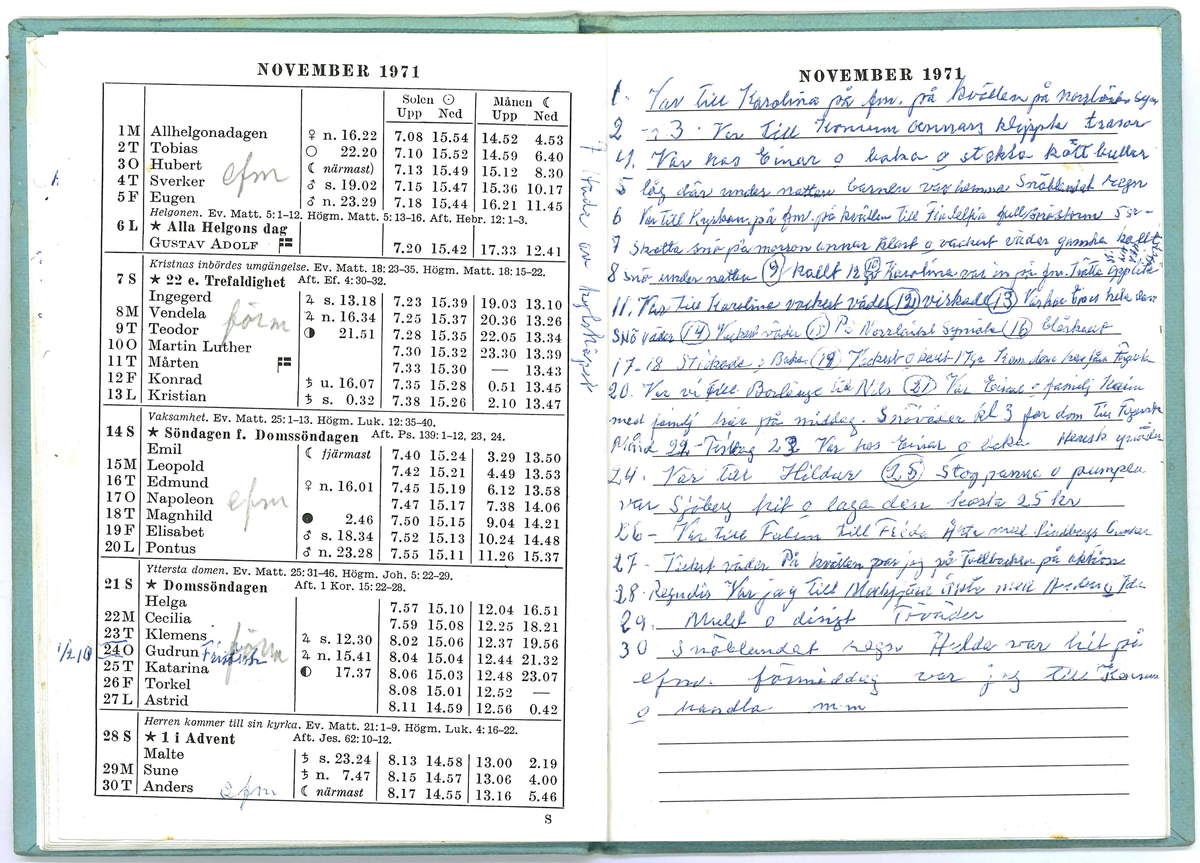 NOVEMBER 1971
Solen ☉ Månen ☾
Upp Ned Upp Ned
1 M Allhelgonadagen ♀ n. 16.22 7.08 15.54 14.52 4.53
2 T Tobias ○ 22.20 7.10 15.52 14.59 6.40
3 O Hubert ☾ närmast) 7.13 15.49 15.12 8.30
efm
4 T Sverker ♂ s. 19.02 7.15 15.47 15.36 10.17
5 F Eugen ♂ n. 23.29 7.18 15.44 16.21 11.45
Helgonen. Ev. Matt. 5: 1-12. Högm. Matt. 5: 13-16. Aft. Hebr. 12: 1-3.
6 L ★ Alla Helgons dag
GUSTAV ADOLF 7.20 15.42 17.33 12.41
Kristnas inbördes umgängelse. Ev. Matt. 18: 23-35. Högm. Matt. 18: 15-22.
7 S ★ 22 e. Trefaldighet Aft. Ef. 4: 30-32.
Ingegerd ♃ s. 13.18 7.23 15.39 19.03 13.10
8 M Vendela ♃ n. 16.34 7.25 15.37 20.36 13.26
förm
9 T Teodor ◑ 21.51 7.28 15.35 22.05 13.34
10 O Martin Luther 7.30 15.32 23.30 13.39
11 T Mårten 7.33 15.30 — 13.43
12 F Konrad ♄ u. 16.07 7.35 15.28 0.51 13.45
13 L Kristian ♄ s. 0.32 7.38 15.26 2.10 13.47
Vaksamhet. Ev. Matt. 25: 1-13. Högm. Luk. 12: 35-40.
14 S ★ Söndagen f. Domssöndagen Aft. Ps. 139: 1-12, 23, 24.
Emil ☾ fjärmast 7.40 15.24 3.29 13.50
15 M Leopold 7.42 15.21 4.49 13.53
16 T Edmund ♀ n. 16.01 7.45 15.19 6.12 13.58
efm
17 O Napoleon 7.47 15.17 7.38 14.06
18 T Magnhild ● 2.46 7.50 15.15 9.04 14.21
19 F Elisabet ♂ s. 18.34 7.52 15.13 10.24 14.48
20 L Pontus ♂ n. 23.28 7.55 15.11 11.26 15.37
Yttersta domen. Ev. Matt. 25: 31-46. Högm. Joh. 5: 22-29.
21 S ★ Domssöndagen Aft. 1 Kor. 15: 22-28.
Helga 7.57 15.10 12.04 16.51
22 M Cecilia 7.59 15.08 12.25 18.21
23 T Klemens ♃ s. 12.30 8.02 15.06 12.37 19.56
förm
24 O Gudrun ♃ n. 15.41 8.04 15.04 12.44 21.32
25 T Katarina ◐ 17.37 8.06 15.03 12.48 23.07
26 F Torkel 8.08 15.01 12.52 —
27 L Astrid 8.11 14.59 12.56 0.42
Herren kommer till sin kyrka. Ev. Matt. 21: 1-9. Högm. Luk. 4: 16-22.
28 S ★ 1 i Advent Aft. Jes. 62: 10-12.
Malte ♄ s. 23.24 8.13 14.58 13.00 2.19
29 M Sune ♄ n. 7.47 8.15 14.57 13.06 4.00
30 T Anders efm ☾ närmast 8.17 14.55 13.16 5.46
S
NOVEMBER 1971
1. Var till Karolina på fm. på kvällen på
2 - 3. Var till Konsum klippte trasor
4. Var hos Einar o baka o stekta köttbullar
5 låg där under natten barnen var hemma Snöblandat regn
6 Var till Kyrkan på fm. på kvällen till Filadelfia full snöstorm
7 Skotta snö på morron annars klart o vackert väder ganska kallt
8 Snö under natten 9 kallt 12 gr Karolina var in på fm.
11. Var till Karolina vackert väder 12 13 Var hos Einar hela dan
Snöväder 14 Vackert väder 15 På Norrlåtät Symöte 16
17-18 Stickade o Baka 19 Vackert o kallt 17 gr
20. Var vi till Borlänge till Nils 21 Var Einar o familj Karin
med familj här på middag Snöväder kl 3 for dom till
Månd 22 - Tisdag 23 Var hos Einar o baka
24. Var till Hildur 25 Stog panna o pumpa
var Sjöberg hit o laga den kosta 25 kr
26 - Var till Falun till Frida
27 - Vackert väder På kvällen var jag på auktion
28. Var jag till
29. Mulet o disigt Töväder
30 Snöblandat regn Hilda var hit på
efm. förmiddag var jag till Konsum
o handla m m